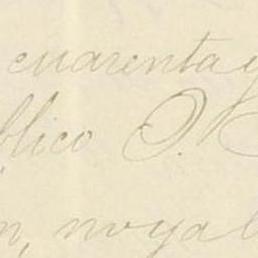 cuarenta y
blico D.
n, noya